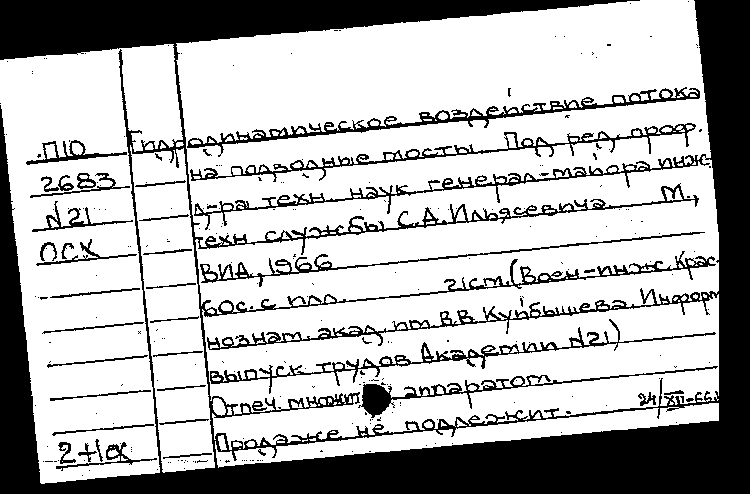 Гидродинамическое воздействие потока
П10 на подводные мосты. Под ред. проф.
2683 д-ра техн. наук генерал-майора инж-
N21 техн. службы С.А. Ильясевича. М.,
ОСХ ВИА, 1966
60с. с илл. 21см. (Воен-инж. Крас-
нознам. акад. им. В.В. Куйбышева. Информ.
выпуск трудов Академии N21)
Отпеч. множит. аппаратом.
Продаже не подлежит. 24/XII-66.
2+1